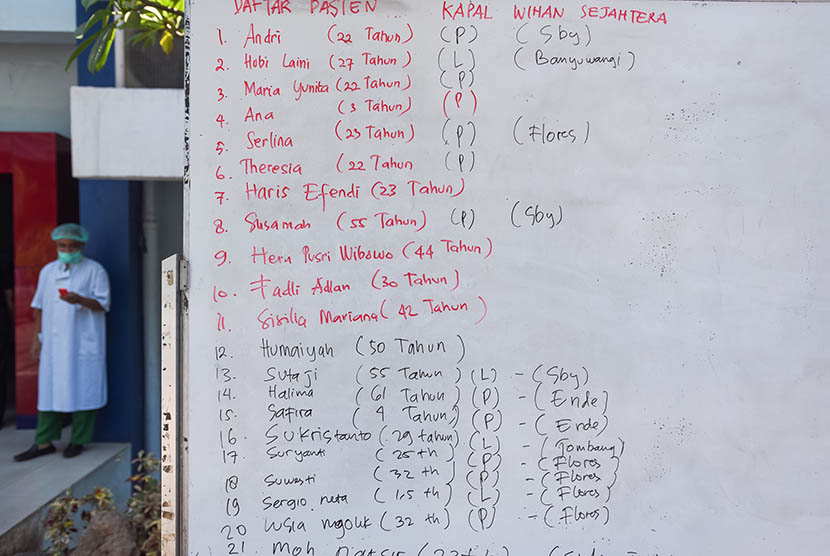 DAFTAR PASIEN KAPAL WIHAN SEJAHTERA
1. Andri (22 Tahun) (P) (Sby)
2. Hobi Laini (27 Tahun) (L) (Banyuwangi)
3. Maria Yunita (22 Tahun) (P)
4. Ana (3 Tahun) (P)
5. Serlina (23 Tahun) (P) (Flores)
6. Theresia (22 Tahun (P)
7. Haris Efendi (23 Tahun)
8. Susamah (55 Tahun) (P) (Sby)
9. Heru Pusri Wibowo (44 Tahun)
10. Fadli Adlan (30 Tahun)
11. Sisilia Mariana (42 Tahun)
12. Humaiyah (50 Tahun)
13. Sutaji (55 Tahun) (L) - (Sby)
14. Halima (61 Tahun) (P) - (Ende)
15. Safira (4 Tahun) (P) - (Ende)
16. Sukristanto (29 tahun) (L) - (Jombang)
17. Suryanti (25 th) (P) - (Flores)
18 Suwasti (32 th) (P) - (Flores)
19 Sergio neta (1,5 th) (L) - (Flores)
20 Lusia ngouk (32 th) (P) - (Flores)
21. Moh